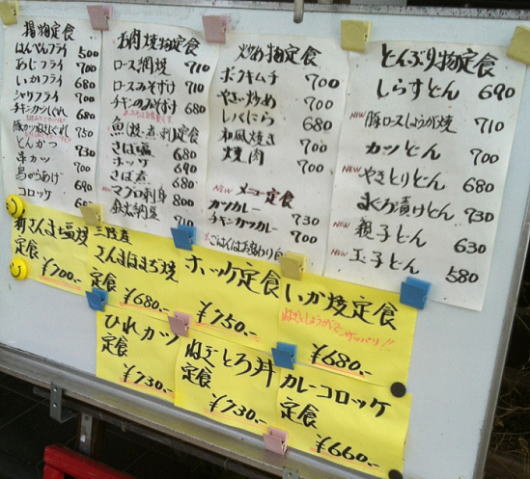 揚物定食
はんぺんフライ 500
あじフライ 700
いかフライ 680
シャリフライ 700
チキンカツ 680
とんかつ 730
串カツ 700
鳥からあげ 690
コロッケ 600
肉焼物定食
ロース網焼 710
ロースみそずけ 710
チキンのみそずけ 680
魚(焼・煮・刺)定食
さば塩 680
ホッケ 690
さば煮 680
NEW マグロ刺身 800
納豆 710
炒め物定食
ブタキムチ 700
やさい炒め 700
レバにら 680
和風焼き 700
焼肉 700
NEW メニュー定食
カツカレー 730
チキンカツカレー 700
ごはんはお変わり自
どんぶり物定食
しらすどん 690
NEW 豚ロースしょうが焼 710
カツどん 700
NEW やきとりどん 680
まぐろ漬けどん 730
NEW 親子どん 630
NEW 玉子どん 580
新さんま塩焼
定食
¥700.-
三陸産
さんまほまろ焼
定食
¥680.-
ホッケ定食
¥750.-
いか焼定食
サッパリ!!
¥680.-
ひれカツ
定食
¥730.-
ねぎとろ丼
定食
¥730.-
カレーコロッケ
定食
¥660.-